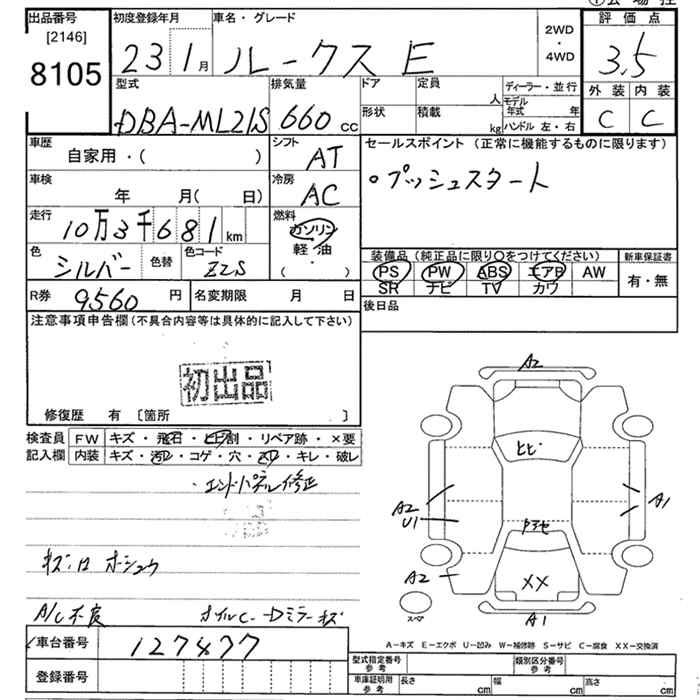 出品番号
[2146]
8105
初度登録年月
23 1月
車名・グレード
ルークス E
2WD
・
4WD
評価点
3.5
外装 内装
C C
型式
DBA-ML21S
排気量
660 cc
ドア
形状
定員
人
積載
kg
ディーラー・並行
モデル年式 年
ハンドル 左・右
車歴
自家用・( )
シフト
AT
車検
年 月( 日)
冷房
AC
走行
10万3千681km
燃料
ガソリン
軽・油
( ・ )
色
シルバー
色替
色コード
ZZS
R券 9560 円
名変期限 月 日
セールスポイント (正常に機能するものに限ります)
○プッシュスタート
装備品 (純正品に限り○をつけてください)
PS PW ABS エアB AW
SR ナビ TV カワ
新車保証書
有・無
後日品
注意事項申告欄(不具合内容等は具体的に記入して下さい)
初出品
修復歴 有 〔箇所 〕
検査員
記入欄
FW キズ・飛石・ヒビ割・リペア跡・×要
内装 キズ・汚レ・コゲ・穴・スレ・キレ・破レ
・エンドパネル修正
キズ・凹 ホシュウ
A/C不良
オイルC-Dミラーキズ
車台番号 127477
登録番号
A2
ヒビ
A2
U1
A1
XX
A2
スペア
A1
A-キズ E-エクボ U-凹み W-補修跡 S-サビ C-腐食 XX-交換済
型式指定番号
参考
類別区分番号
参考
車庫証明用
参考
長さ cm 幅 cm 高さ cm